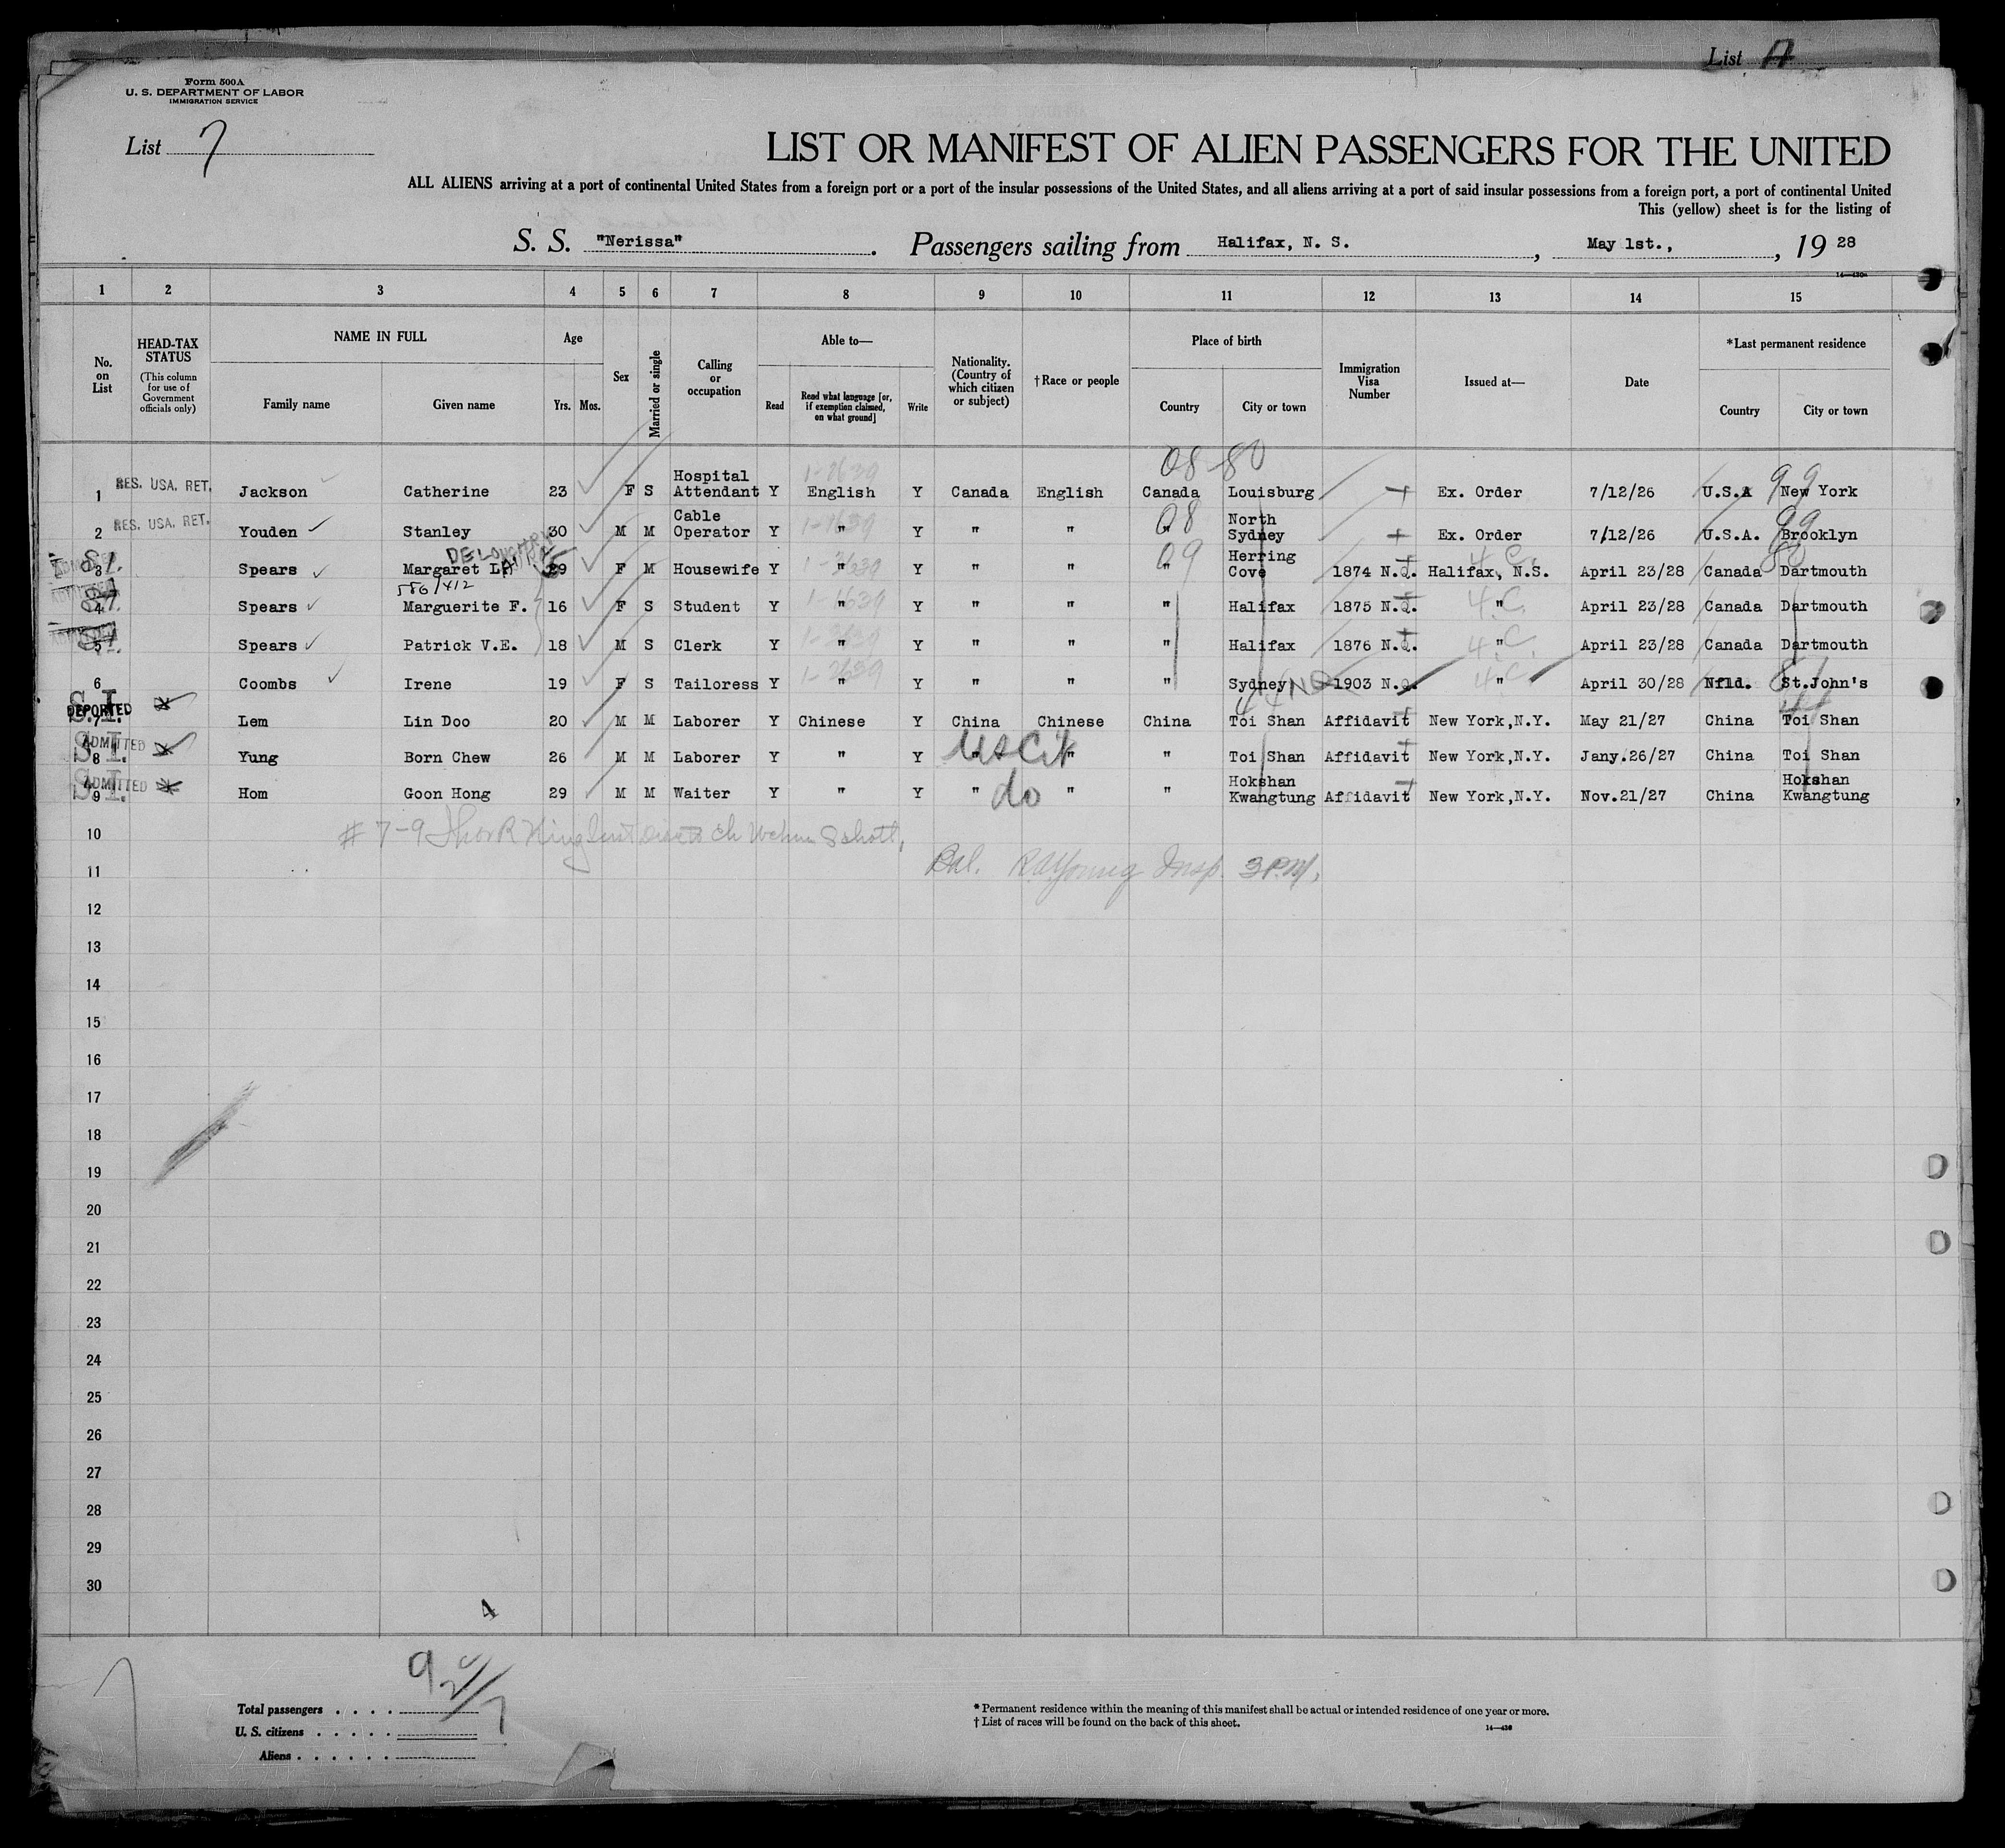 List A
Form 500A
U. S. DEPARTMENT OF LABOR
IMMIGRATION SERVICE
List 7
LIST OR MANIFEST OF ALIEN PASSENGERS FOR THE UNITED
ALL ALIENS arriving at a port of continental United States from a foreign port or a port of the insular possessions of the United States, and all aliens arriving at a port of said insular possessions from a foreign port, a port of continental United
This (yellow) sheet is for the listing of
S. S. "Nerissa" . Passengers sailing from Halifax, N. S. , May 1st., , 19 28
14—430
1 2 3 4 5 6 7 8 9 10 11 12 13 14 15
No. on List
HEAD-TAX STATUS
(This column for use of Government officials only)
NAME IN FULL
Family name Given name
Age
Yrs. Mos.
Sex
Married or single
Calling or occupation
Able to—
Read
Read what language [or, if exemption claimed, on what ground]
Write
Nationality. (Country of which citizen or subject)
†Race or people
Place of birth
Country City or town
Immigration Visa Number
Issued at—
Date
*Last permanent residence
Country City or town
08-80
1 RES. USA. RET. Jackson Catherine 23 F S Hospital Attendant Y 1-2639 English Y Canada English Canada Louisburg Ex. Order 7/12/26 U.S.A 99 New York
2 RES. USA. RET. Youden Stanley 30 M M Cable Operator Y " Y " " 08 " North Sydney Ex. Order 7/12/26 U.S.A. 99 Brooklyn
3 Spears Margaret L. 29 F M Housewife Y " Y " " 09 " Herring Cove 1874 N.Q. Halifax, N.S. 4.C. April 23/28 Canada 80 Dartmouth
586/412
4 Spears Marguerite F. 16 F S Student Y 1-1639 " Y " " " Halifax 1875 N.Q. " 4.C. April 23/28 Canada Dartmouth
5 Spears Patrick V.E. 18 M S Clerk Y " Y " " " Halifax 1876 N.Q. " 4.C. April 23/28 Canada Dartmouth
6 Coombs Irene 19 F S Tailoress Y 1-2639 " Y " " " Sydney 1903 N.Q. " 4.C April 30/28 Nfld. St.John's
S.I. DEPORTED 7 Lem Lin Doo 20 M M Laborer Y Chinese Y China Chinese China 44 Toi Shan Affidavit New York,N.Y. May 21/27 China 44 Toi Shan
S.I. ADMITTED 8 Yung Born Chew 26 M M Laborer Y " Y " US Cit " " Toi Shan Affidavit New York,N.Y. Jany.26/27 China Toi Shan
S.I. ADMITTED 9 Hom Goon Hong 29 M M Waiter Y " Y " do " " Hokshan Kwangtung Affidavit New York,N.Y. Nov.21/27 China Hokshan Kwangtung
10 # 7-9
11 Insp. 3 P.M.
12
13
14
15
16
17
18
19
20
21
22
23
24
25
26
27
28
29
30
4
Total passengers . . . . 9
U. S. citizens . . . . . 2
Aliens . . . . . . 7
* Permanent residence within the meaning of this manifest shall be actual or intended residence of one year or more.
† List of races will be found on the back of this sheet.
14—430